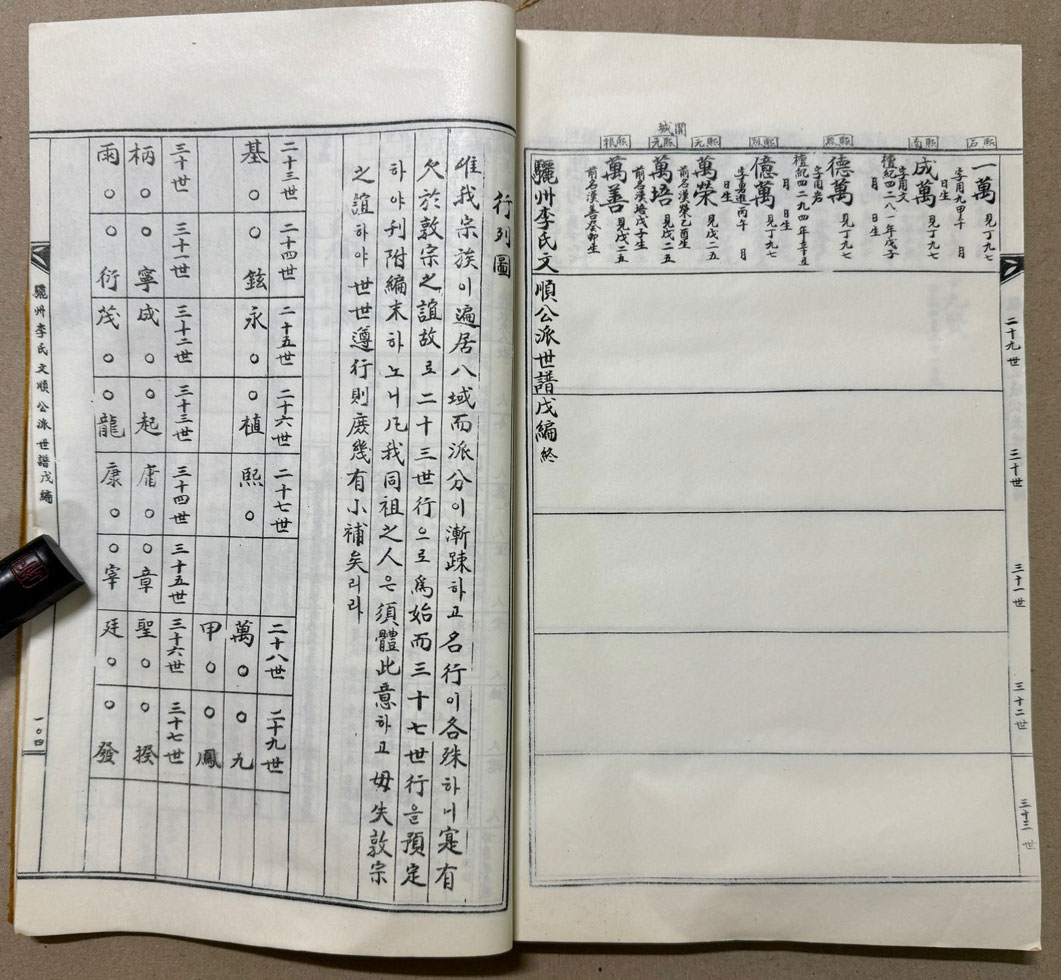 二十九世
三十世
三十一世
三十二世
三十三世
石熙
熙
熙
熙
元熙
元熙
根熙
關城
一萬 見丁九七
字用九甲午 月 日生
成萬 見丁九七
字用文
檀紀四二八一年戊子 月 日生
德萬 見丁九七
字用岩
檀紀四二九四年辛丑 月 日生
億萬 見丁九七
字勇進丙午 月 日生
萬榮 見戊二五
前名漢榮乙酉生
萬培 見戊二五
前名漢培戊子生
萬善 見戊二五
前名漢善癸卯生
驪州李氏文順公派世譜戊編 終
行列圖
惟我宗族이遍居八域而派分이漸踈하고名行이各殊하니寔有
欠於敦宗之誼故로二十三世行으로爲始而三十七世行을預定
하야刋附編末하노니凡我同祖之人은須體此意하고毋失敦宗
之誼하야世世遵行則庶幾有小補矣리라
二十三世 二十四世 二十五世 二十六世 二十七世 二十八世 二十九世
基○ ○鉉 永○ ○植 熙○ 萬○ ○九
甲○ ○鳳
三十世 三十一世 三十二世 三十三世 三十四世 三十五世 三十六世 三十七世
柄○ ○寧 成○ ○起 庸○ ○章 聖○ ○揆
雨○ ○衍 茂○ ○龍 康○ ○宰 廷○ ○發
驪州李氏文順公派世譜戊編
一○四